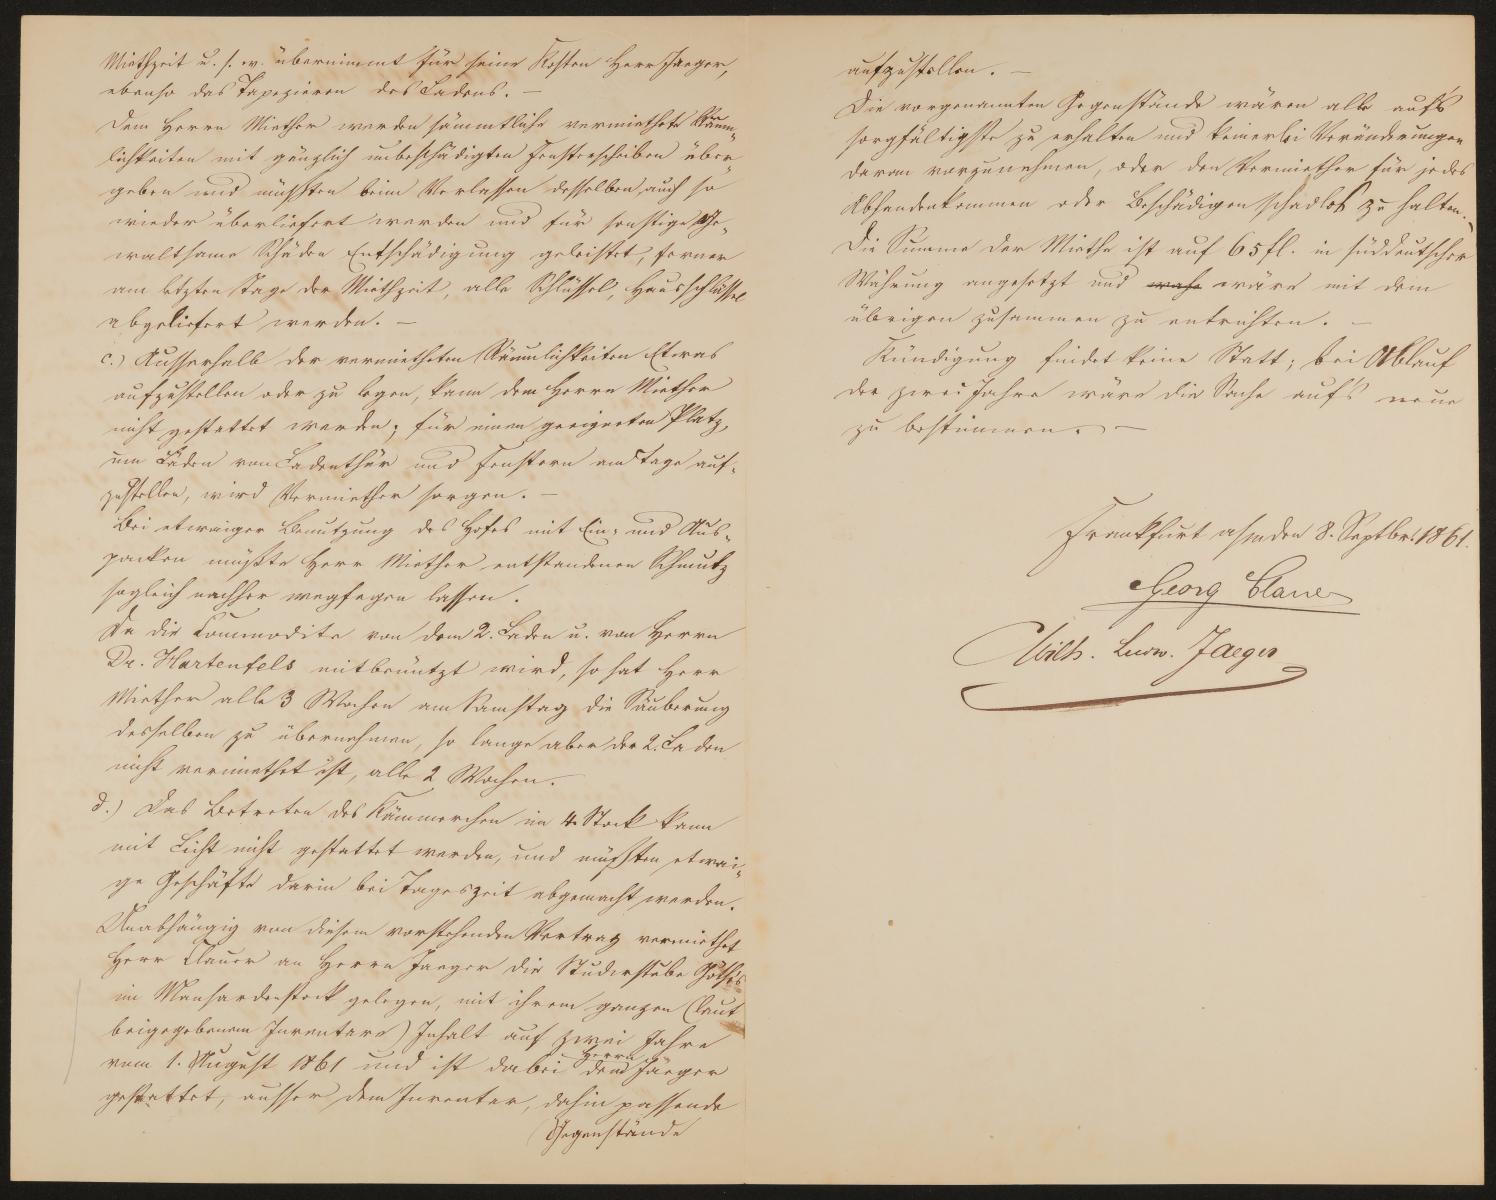 Miethzeit u. s. w. übernimmt für seine Kosten Herr Jaeger,
ebenso das Tapezieren des Ladens. —
Dem Herrn Miether werden sämmtliche vermiethete Räum-
lichkeiten mit gänzlich unbeschädigten Fensterscheiben über-
geben und müssten beim Verlassen desselben auch so
wieder überliefert werden und für sonstige Ge-
waltsame Schäden Entschädigung geleistet, ferner
am letzten Tage der Miethzeit, alle Schlüssel, Hausschlüssel
abgeliefert werden. —
c.) Ausserhalb der vermietheten Räumlichkeiten Etwas
aufzustellen oder zu legen, kann dem Herrn Miether
nicht gestattet werden; für einen geeigneten Platz,
um Läden von Ladenthür und Fenstern am Tage auf-
zustellen, wird Vermiether sorgen. —
Bei etwaiger Benutzung des Hofes mit Ein- und Aus-
packen müßte Herr Miether entstandenen Schmutz
sogleich nachher wegfegen lassen.
Da die Commodite von dem 2. Laden u. von Herrn
Dr. Hartenfels mitbenützt wird, so hat Herr
Miether alle 3 Wochen am Samstag die Säuberung
desselben zu übernehmen, so lange aber der 2. Laden
nicht vermiethet ist, alle 2 Wochen.
d.) Das Betreten des Kämmerchen im 4. Stock kann
mit Licht nicht gestattet werden, und müßten etwai-
ge Geschäfte darin bei Tageszeit abgemacht werden.
Unabhängig von diesem vorstehenden Vertrag vermiethet
Herr Clauer an Herrn Jaeger die Studierstube Göthe's
im Mansardenstock gelegen, mit ihrem ganzen (laut
beigegebenem Inventare) Inhalt auf zwei Jahre
vom 1. August 1861 und ist dabei dem Herrn Jaeger
gestattet, ausser dem Inventar, dahin passende
Gegenstände
aufzustellen. —
Die vorgenannten Gegenstände wären alle auf's
sorgfältigste zu erhalten und keinerlei Veränderungen
daran vorzunehmen, oder den Vermiether für jedes
Abhandenkommen oder Beschädigen schadlos zu halten. —
Die Summe der Miethe ist auf 65 fl. in süddeutscher
Währung angesetzt und wäre mit dem
übrigen zusammen zu entrichten. —
Kündigung findet keine Statt; bei Ablauf
der zwei Jahre wäre die Sache aufs neue
zu bestimmen. —
Frankfurt a/m den 8. Septbr. 1861.
Georg Clauer
Wilh. Ludw. Jaeger